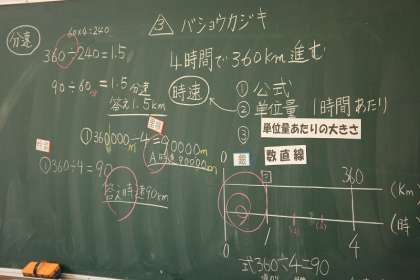 分速
60×4=240
360÷240=1.5
90÷60=1.5
分速
答え1.5km
③ バショウカジキ
4時間で360km進む
時速
① 公式
② 単位量 1時間あたり
③ 単位量あたりの大きさ
数直線
①360000÷4=90000m
A 時速90000m
①360÷4=90
答え時速90km
0 360 (Km)
0 1 4 (時
式360÷4=90